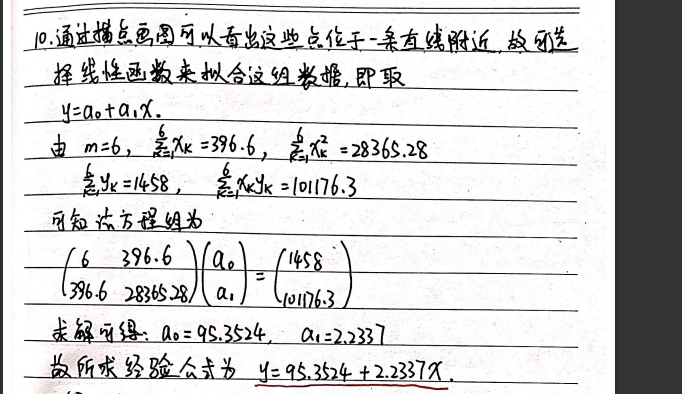 10.通过描点画图可以看出这些点位于一条直线附近,故可选
择线性函数来拟合这组数据,即取
y=a₀+a₁x.
由 m=6, ∑_{k=1}^{6} x_k=396.6, ∑_{k=1}^{6} x_k²=28365.28
∑_{k=1}^{6} y_k=1458, ∑_{k=1}^{6} x_k y_k=101176.3
可知法方程组为
(6 396.6)(a₀) = (1458)
(396.6 28365.28)(a₁) (101176.3)
求解可得: a₀=95.3524, a₁=2.2337
故所求经验公式为 y=95.3524+2.2337x.